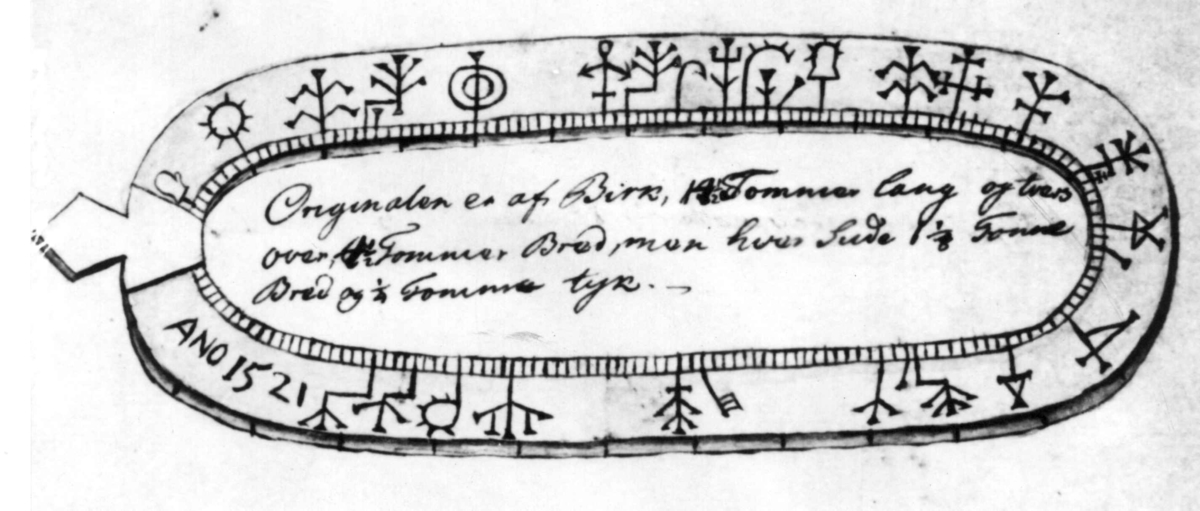 Originalen er af Birk, Tommer lang og tvers
over, Tommer Bred, men hver Side 1 1/2 Tomme
Bred og Tomme tyk. -
ANO 1521